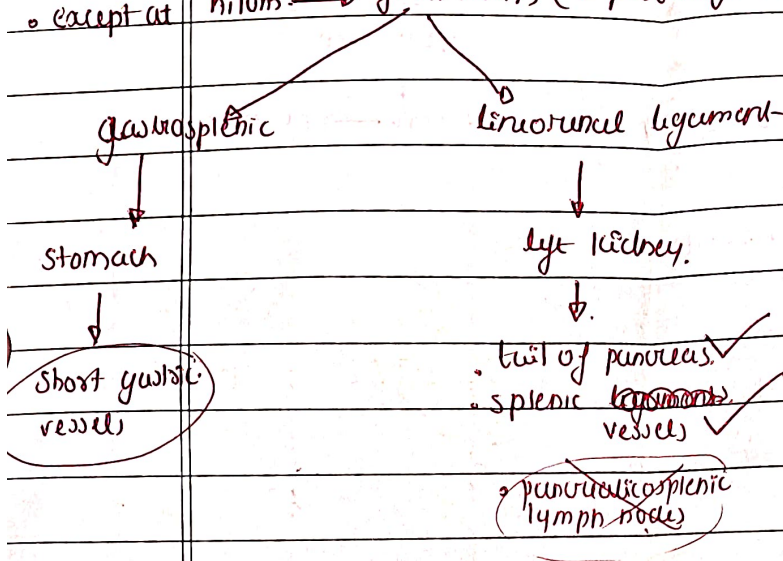 • except at hilum.
gastrosplenic
lineorenal ligament
stomach
left kidney.
short gastric
vessels
• tail of pancreas.
• splenic ligaments
vessels
• pancreaticosplenic
lymph nodes